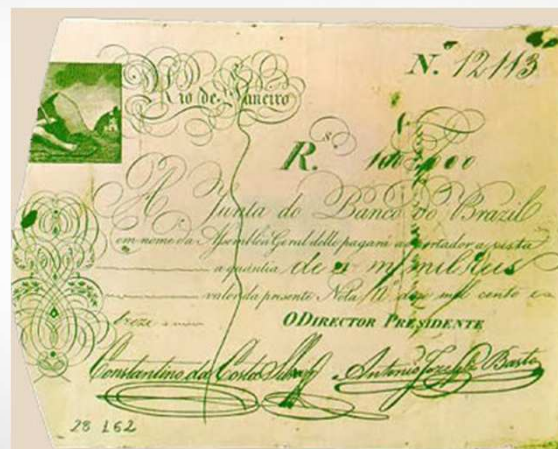 N.º 12113
Rio de Janeiro
R.s 100#000
A Junta do Banco do Brazil
em nome da Assembléa Geral delle pagará ao portador a vista
a quantia de mil Reis
valor da presente Nota N. doze mil cento e
treze
O DIRECTOR PRESIDENTE
Constantino da Costa Antonio Basto
28 162